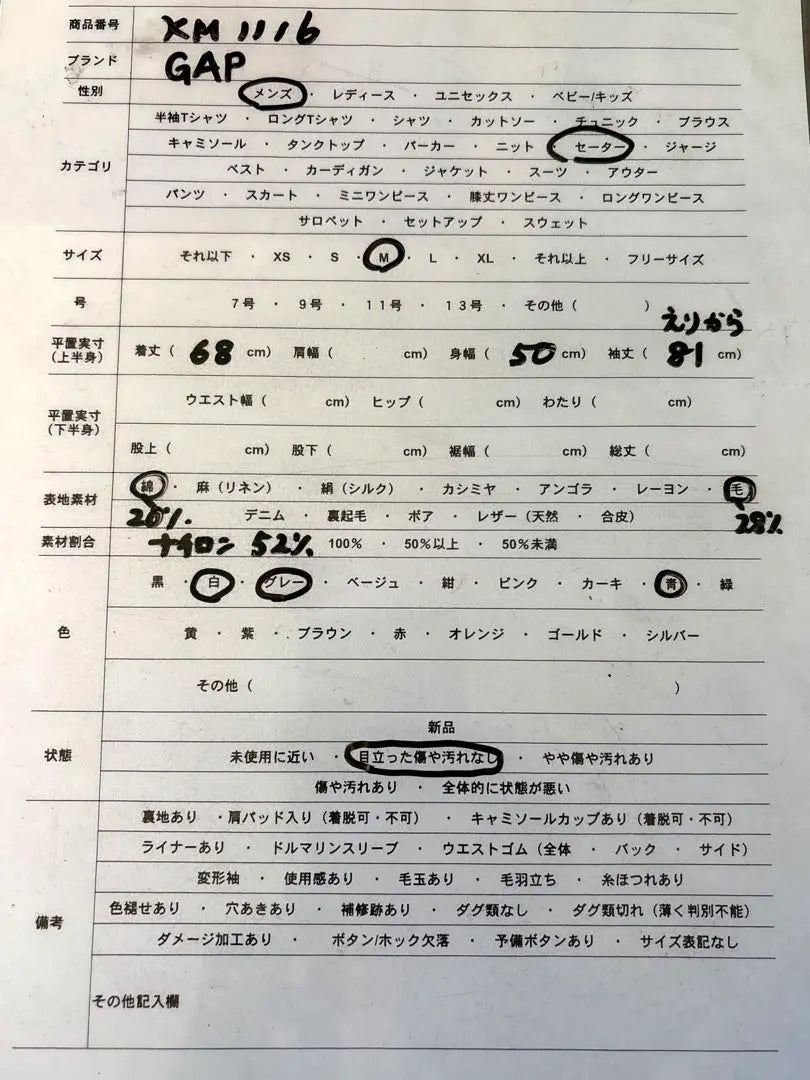 商品番号 XM1116
ブランド GAP
性別 メンズ ・ レディース ・ ユニセックス ・ ベビー/キッズ
半袖Tシャツ ・ ロングTシャツ ・ シャツ ・ カットソー ・ チュニック ・ ブラウス
キャミソール ・ タンクトップ ・ パーカー ・ ニット ・ セーター ・ ジャージ
カテゴリ ベスト ・ カーディガン ・ ジャケット ・ スーツ ・ アウター
パンツ ・ スカート ・ ミニワンピース ・ 膝丈ワンピース ・ ロングワンピース
サロペット ・ セットアップ ・ スウェット
サイズ それ以下 ・ XS ・ S ・ M ・ L ・ XL ・ それ以上 ・ フリーサイズ
号 7号 ・ 9号 ・ 11号 ・ 13号 ・ その他（ ）
えりから
平置実寸 着丈（ 68 cm） 肩幅（ cm） 身幅（ 50 cm） 袖丈（ 81 cm）
（上半身）
ウエスト幅（ cm） ヒップ（ cm） わたり（ cm）
平置実寸
（下半身）
股上（ cm） 股下（ cm） 裾幅（ cm） 総丈（ cm）
表地素材 綿 ・ 麻（リネン） ・ 絹（シルク） ・ カシミヤ ・ アンゴラ ・ レーヨン ・ 毛
20% デニム ・ 裏起毛 ・ ボア ・ レザー（天然 ・ 合皮） 28%
素材割合 ナイロン 52% 100% ・ 50%以上 ・ 50%未満
黒 ・ 白 ・ グレー ・ ベージュ ・ 紺 ・ ピンク ・ カーキ ・ 青 ・ 緑
色 黄 ・ 紫 ・ ブラウン ・ 赤 ・ オレンジ ・ ゴールド ・ シルバー
その他（ ）
新品
状態 未使用に近い ・ 目立った傷や汚れなし ・ やや傷や汚れあり
傷や汚れあり ・ 全体的に状態が悪い
裏地あり ・肩パッド入り（着脱可・不可） ・ キャミソールカップあり（着脱可・不可）
ライナーあり ・ ドルマリンスリーブ ・ ウエストゴム（全体 ・ バック ・ サイド）
変形袖 ・ 使用感あり ・ 毛玉あり ・ 毛羽立ち ・ 糸ほつれあり
備考 色褪せあり ・ 穴あきあり ・ 補修跡あり ・ ダグ類なし ・ ダグ類切れ（薄く判別不能）
ダメージ加工あり ・ ボタン/ホック欠落 ・ 予備ボタンあり ・ サイズ表記なし
その他記入欄